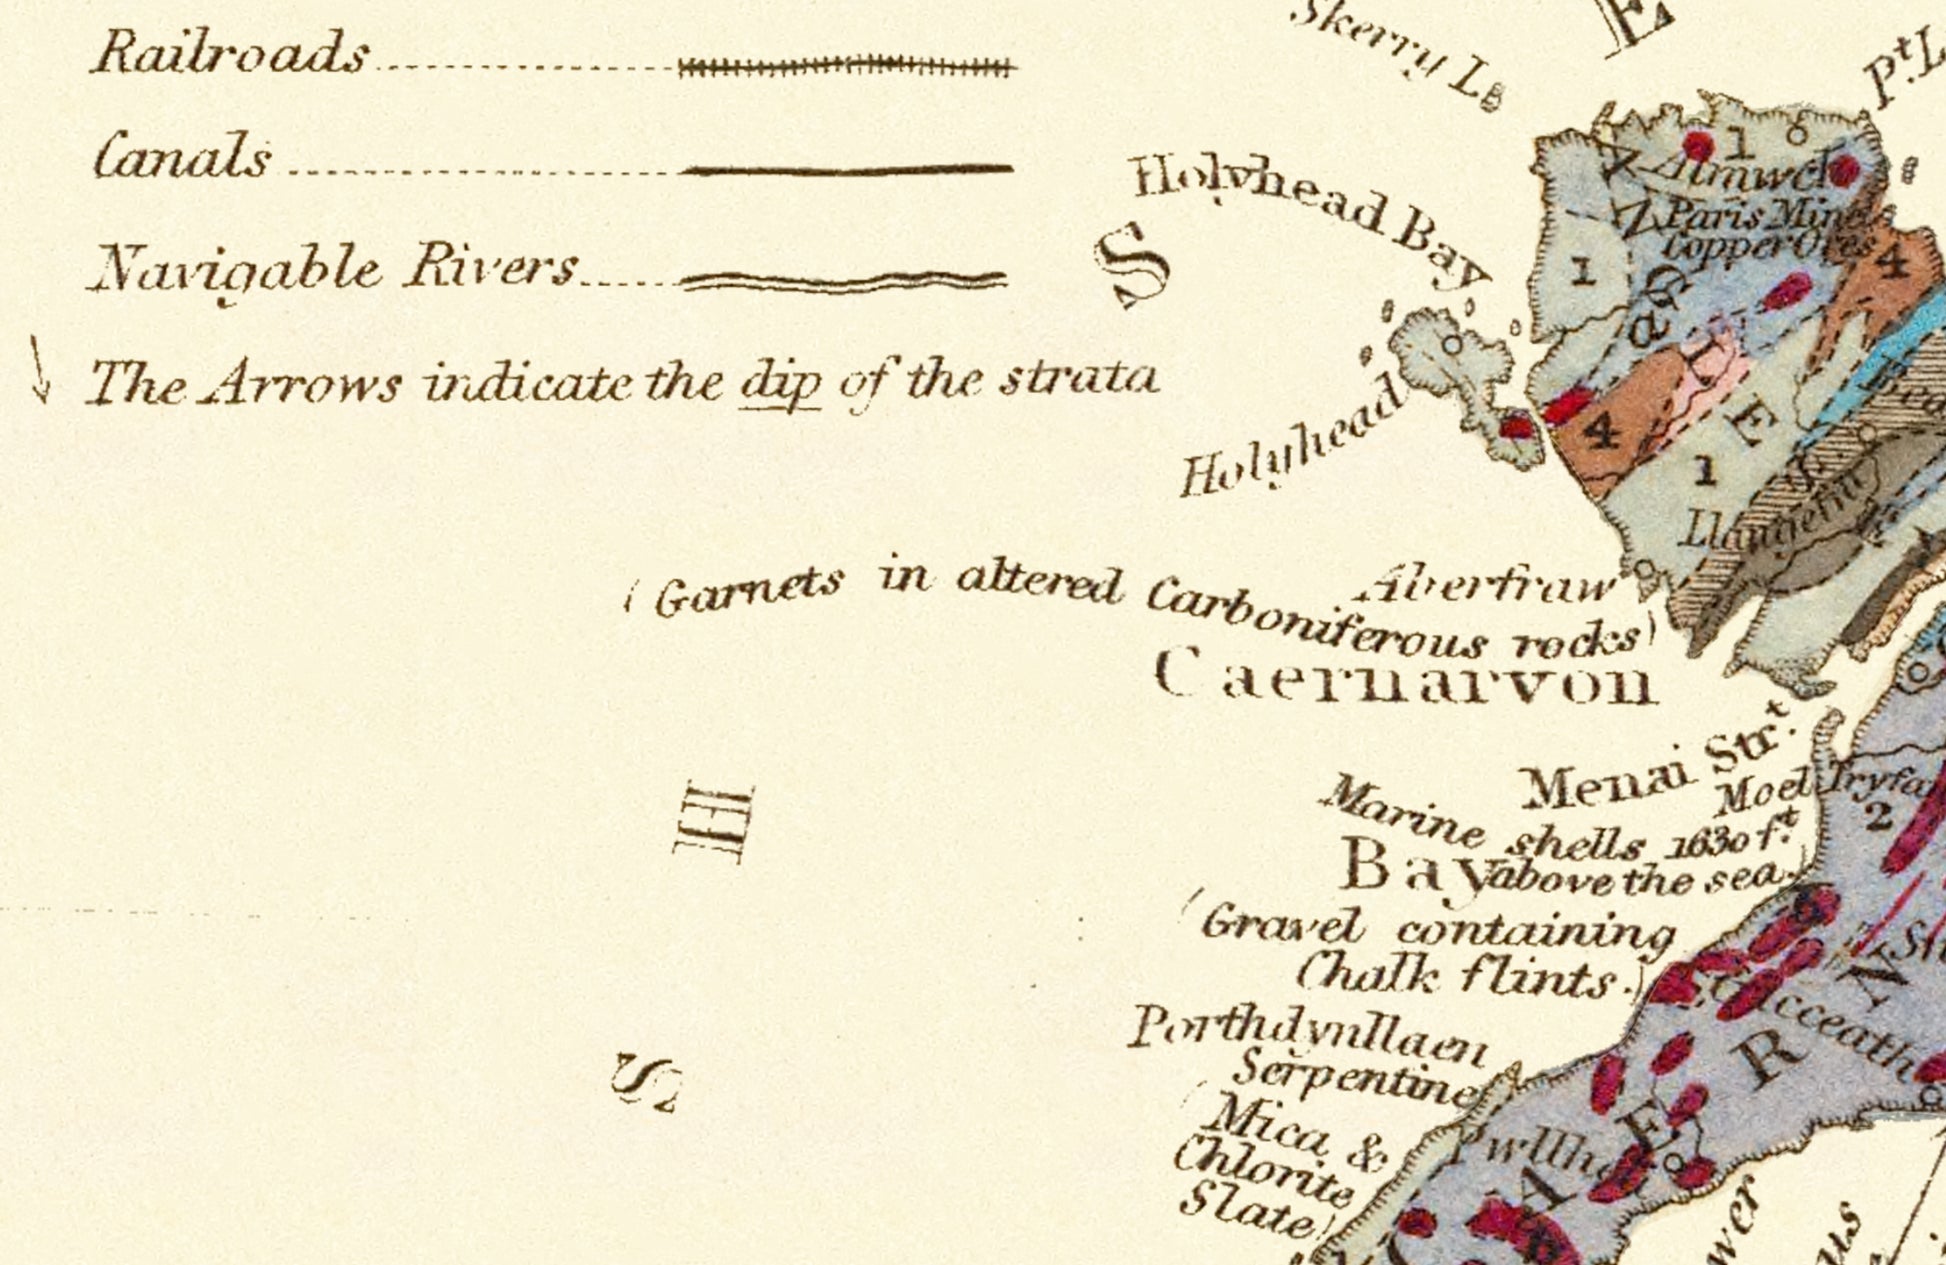 Railroads
Canals
Navigable Rivers
The Arrows indicate the dip of the strata
Skerry Is
E
Pt. L
Holyhead Bay
S
1
Amwch
Paris Mines
Copper Ores
1
4
4
1
L
E
Holyhead
(Garnets in altered Carboniferous rocks)
Aberfraw
Caernarvon
Menai Strt.
Moel Tryfa
2
Marine shells 1630 ft.
Bay
above the sea.
(Gravel containing
Chalk flints.)
H
S
Porthdynllaen
Serpentine
Mica &
Chlorite
Slate)
Pwllh
C A E R N